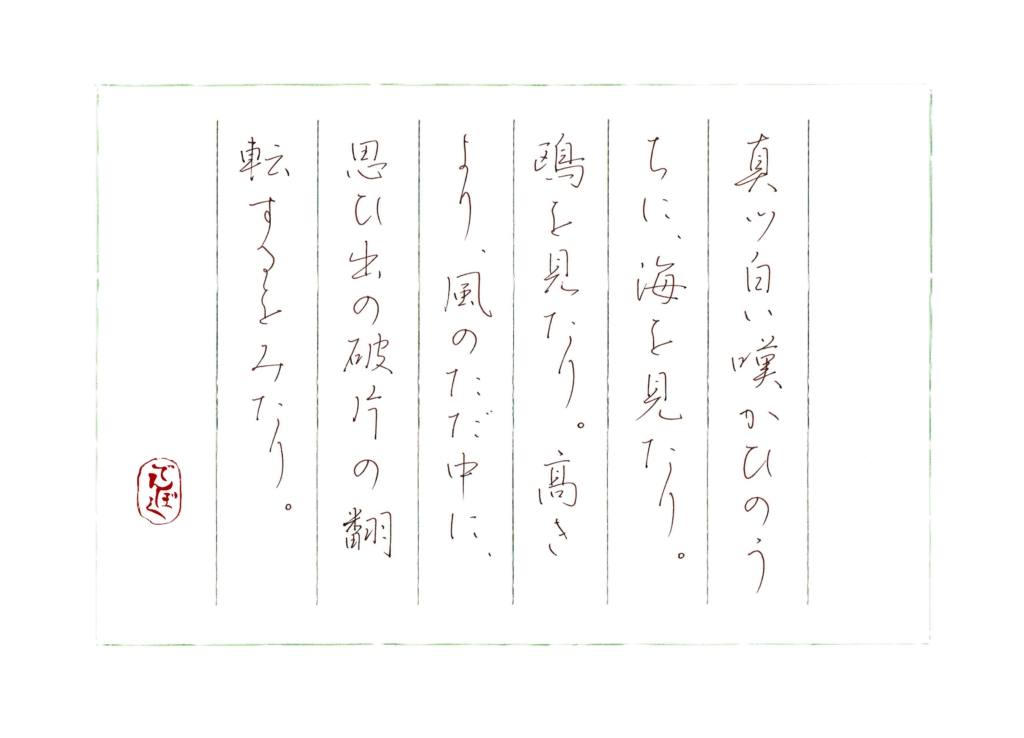 真ッ白い嘆かひのう
ちに、海を見たり。
鴎を見たり。高き
より、風のただ中に、
思ひ出の破片の翻
転するをみたり。
でんぼく